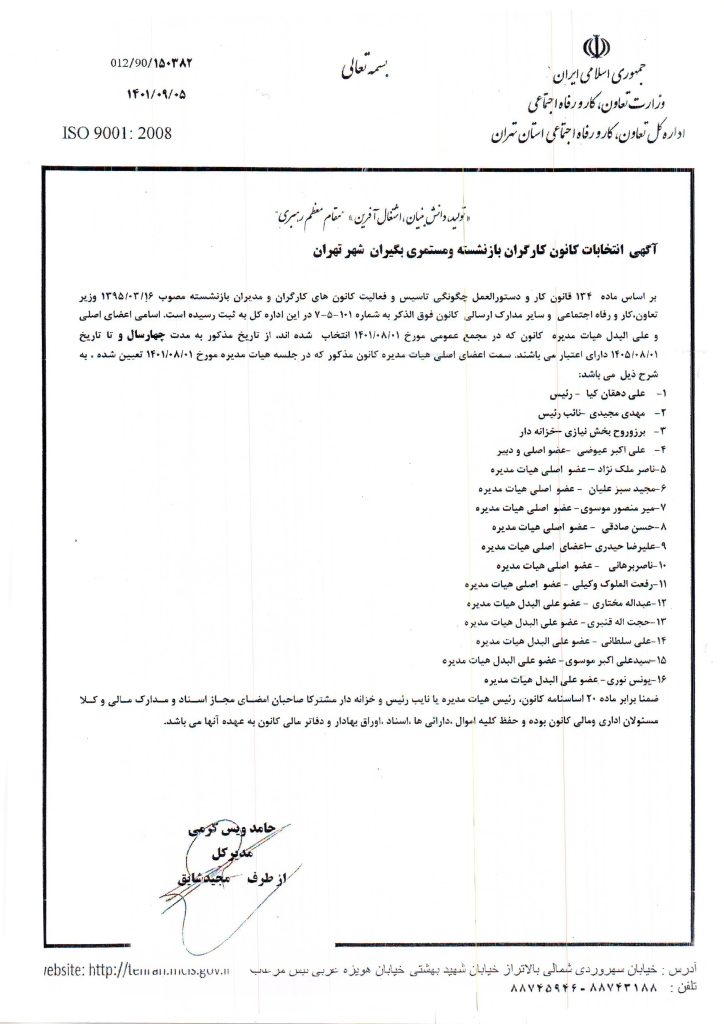 بسمه تعالی
جمهوری اسلامی ایران
وزارت تعاون، کار و رفاه اجتماعی
اداره کل تعاون، کار و رفاه اجتماعی استان تهران
012/90/۱۵۰۳۸۲
۱۴۰۱/۰۹/۰۵
ISO 9001: 2008
«تولید، دانش بنیان، اشتغال آفرین» "مقام معظم رهبری"
آگهی انتخابات کانون کارگران بازنشسته ومستمری بگیران شهر تهران
بر اساس ماده ۱۳۴ قانون کار و دستورالعمل چگونگی تاسیس و فعالیت کانون های کارگران و مدیران بازنشسته مصوب ۱۳۹۵/۰۳/۱۶ وزیر
تعاون،کار و رفاه اجتماعی و سایر مدارک ارسالی کانون فوق الذکر به شماره ۱۰۱-۵-۷ در این اداره کل به ثبت رسیده است. اسامی اعضای اصلی
و علی البدل هیات مدیره کانون که در مجمع عمومی مورخ ۱۴۰۱/۰۸/۰۱ انتخاب شده اند. از تاریخ مذکور به مدت چهارسال و تا تاریخ
۱۴۰۵/۰۸/۰۱ دارای اعتبار می باشند. سمت اعضای اصلی هیات مدیره کانون مذکور که در جلسه هیات مدیره مورخ ۱۴۰۱/۰۸/۰۱ تعیین شده ، به
شرح ذیل می باشد:
۱- علی دهقان کیا - رئیس
۲- مهدی مجیدی –نائب رئیس
۳- برزوروح بخش نیازی –خزانه دار
۴- علی اکبر عیوضی -عضو اصلی و دبیر
۵-ناصر ملک نژاد – عضو اصلی هیات مدیره
۶-مجید سبز علیان - عضو اصلی هیات مدیره
۷-میر منصور موسوی- عضو اصلی هیات مدیره
۸-حسن صادقی - عضو اصلی هیات مدیره
۹-علیرضا حیدری –اعضای اصلی هیات مدیره
۱۰-ناصربرهانی - عضو اصلی هیات مدیره
۱۱-رفعت الملوک وکیلی - عضو اصلی هیات مدیره
۱۲-عبداله مختاری - عضو علی البدل هیات مدیره
۱۳-حجت اله قنبری- عضو علی البدل هیات مدیره
۱۴-علی سلطانی - عضو علی البدل هیات مدیره
۱۵-سیدعلی اکبر موسوی- عضو علی البدل هیات مدیره
۱۶-یونس نوری- عضو علی البدل هیات مدیره
ضمنا برابر ماده ۲۰ اساسنامه کانون، رئیس هیات مدیره یا نایب رئیس و خزانه دار مشترکا صاحبان امضای مجاز اسناد و مدارک مالی و کلا
مسئولان اداری ومالی کانون بوده و حفظ کلیه اموال ،دارائی ها ،اسناد ،اوراق بهادار و دفاتر مالی کانون به عهده آنها می باشد.
حامد ویس کرمی
مدیرکل
از طرف مجید شایق
آدرس : خیابان سهروردی شمالی بالاتراز خیابان شهید بهشتی خیابان هویزه غربی نبش
website: http://tehran.mcls.gov.ir
تلفن : ۸۸۷۴۳۱۸۸ - ۸۸۷۴۵۹۴۶